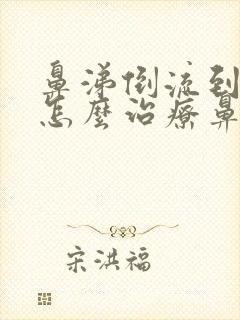 鼻涕倒流到
怎麼治療鼻
宋洪福